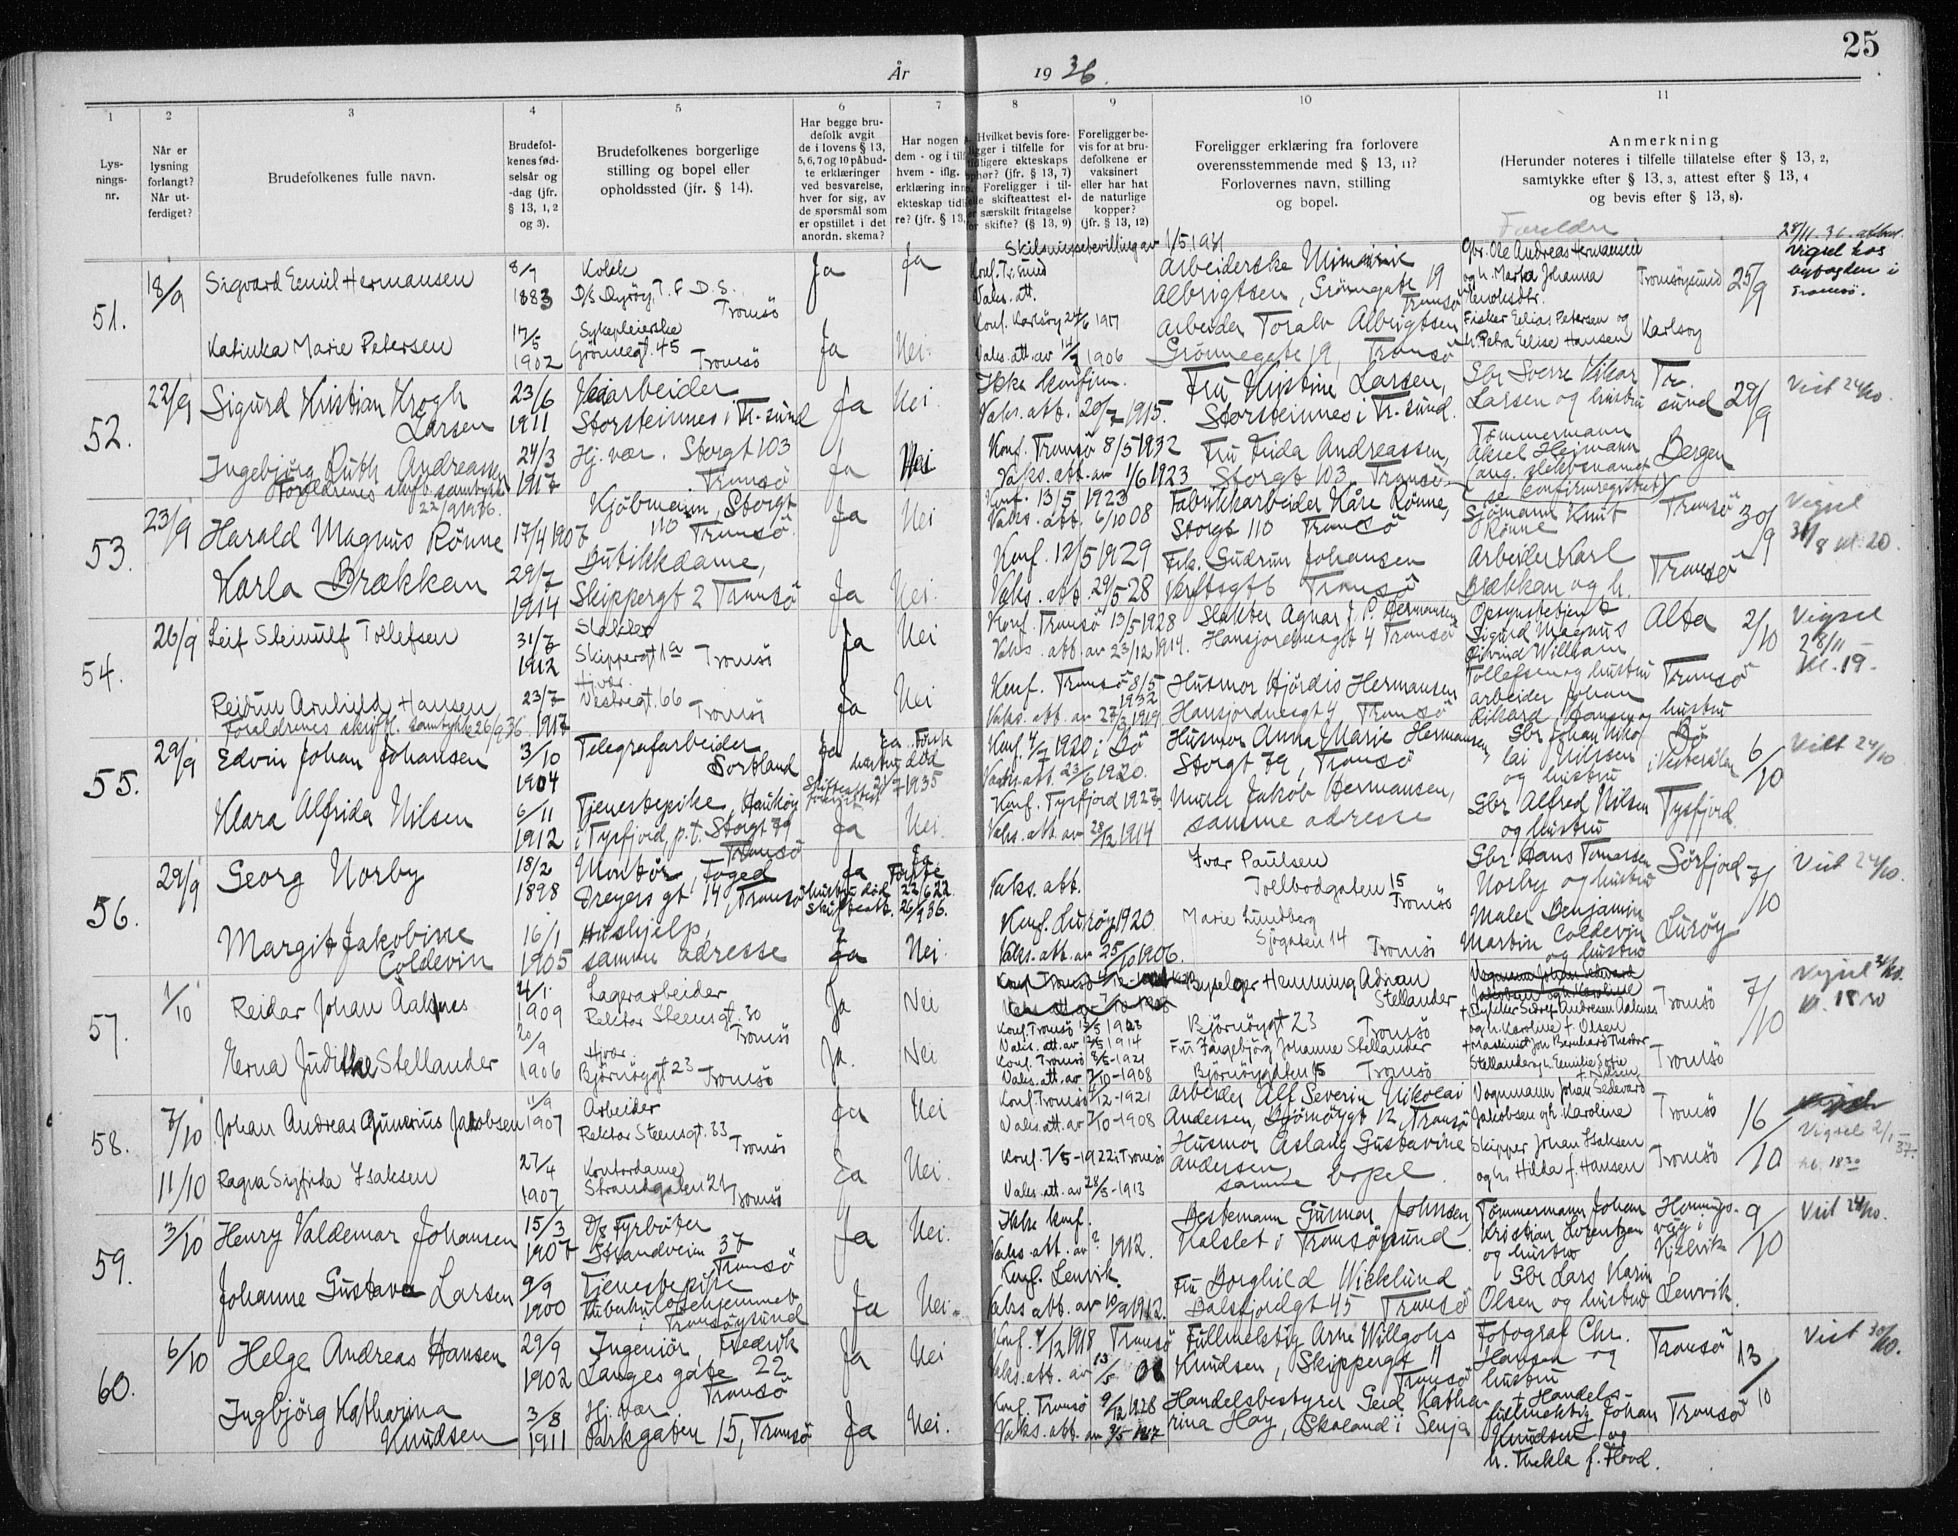 25
År 1936.
1 2 3 4 5 6 7 8 9 10 11
Lys-
nings-
nr.
Når er
lysning
forlangt?
Når ut-
ferdiget?
Brudefolkenes fulle navn.
Brudefol-
kenes fød-
selsår og
-dag (jfr.
§ 13, 1, 2
og 3).
Brudefolkenes borgerlige
stilling og bopel eller
opholdssted (jfr. § 14).
Har begge bru-
defolk avgit
de i lovens § 13,
5, 6, 7 og 10 påbud-
te erklæringer
ved besvarelse,
hver for sig, av
de spørsmål som
er opstillet i det
anordn. skema?
Har nogen a
dem - og i tilf
hvem - iflg.
erklæring inng
ekteskap tidli
re? (jfr. § 13,
Hvilket bevis fore-
ligger i tilfelle for
tidligere ekteskaps
ophør? (jfr. § 13, 7)
Foreligger i til-
elle skifteattest el-
er særskilt fritagelse
for skifte? (§ 13, 9)
Foreligger be-
vis for at bru-
defolkene er
vaksinert
eller har hat
de naturlige
kopper?
(jfr. § 13, 12)
Foreligger erklæring fra forlovere
overensstemmende med § 13, 11?
Forlovernes navn, stilling
og bopel.
Anmerkning
(Herunder noteres i tilfelle tillatelse efter § 13, 2,
samtykke efter § 13, 3, attest efter § 13, 4
og bevis efter § 13, 8).
Foreldre
51.
18/9 Sigvard Emil Hermansen
8/7 1883
Kokk
D/S Dyröy, T.F.D.S.
Tromsö
Ja Ja
Skilsmissebevilling av 1/5 1931
Konf. Tr.sund
Vaks. att.
Arbeiderske
Albrigtsen, Grönnegate 19
Tromsö
Gbr. Ole Andreas Hermansen
og h. Marta Johanna
Tromsöysund 25/9
28/11.36
Vigsel hos
byfogden i
Tromsö.
Katinka Marie Petersen
17/5 1902
Sykepleierske
Grönnegt. 45 Tromsö
Ja Nei.
Konf. Karlsöy 24/6 1917
Vaks. att. av 14/9 1906
Arbeider Toralv Albrigtsen
Grönnegate 19, Tromsö
Fisker Elias Petersen og
h. Petra Elise Hansen Karlsoy
52.
22/9 Sigurd Kristian Krogh
Larsen
23/6 1911
Veiarbeider
Storsteinnes i Tr.sund
Ja Nei
Ikke konfirm.
Vaks. att. 20/7 1915.
Fru Kristine Larsen,
Storsteinnes i Tr.sund.
Gbr Sverre Hikar
Larsen og hustru
Tr.
sund 29/9
Viet 24/10.
Ingebjörg Ruth Andreassen
Foreldrenes skrftl. samtykke
22/9 1936.
24/3 1917
Hj. vær. Storgt 103
Tromsö
Ja Nei
Konf. Tromsö 8/5 1932
Vaks. att. av 1/6 1923
Fru Frida Andreassen,
Storgt 103 Tromsö.
Tömmermann
Aksel Heimann
(ang. slektsnavnet
se konfirmregistret)
Bergen
53.
23/9 Harald Magnus Rönne
17/4 1907
Kjöbmann, Storgt
110 Tromsö
Ja Nei
Konf. 13/5 1923
Vaks. att. 6/10 08
Fabrikkarbeider Kåre Rönne,
Storgt 110 Tromsö
Sjömann Knut
Rönne
Tromsö 30/9
Vigsel
kl. 20.
Karla Brækkan
29/7 1914
Butikkdame,
Skippergt 2 Tromsö
Ja Nei.
Konf. 12/5 1929
Vaks. att. 29/5 28
Frk. Gudrun Johansen
Verftsgt 6 Tromsö
Arbeider Karl
Brækkan og h.
Tromsö
54.
26/9 Leif Steinulf Tollefsen
31/7 1912
Slakter
Skippergt 1a Tromsö
Ja Nei
Konf. Tromsö 13/5 1928
Vaks. att. av 23/12 1914.
Slakter Agnar J. P. Hermansen
Hansjordnesgt 4 Tromsö
Opsynsbetjent
Sigurd Magnus
Eivind William
Tollefsen og hustru
Alta 2/10
Vigsel
28/11
kl. 19.
Reidun Arnhild Hansen
Foreldrenes skriftl. samtykke 26/9 36.
23/7 1917
Hj.vær.
Vestregt. 66
Tromsö
Ja Nei
Konf. Tromsö 8/5 1932
Vaks. att. av 27/3 1919
Husmor Hjördis Hermansen
Hansjordnesgt 4 Tromsö
Arbeider Johan
Rikard Hansen og
hustru
Tromsö
55.
29/9 Edvin Johan Johansen
3/10 1904
Telegrafarbeider
Sortland
Ja Ja. Först
hustru död
1935
Skifteattest
Konf. 4/7 1920 i Bö
Vaks. att. 23/6 1920.
Husmor Anna Marie Hermansen,
Storgt 79, Tromsö
Gbr. Johan Niko-
lai Nilssen
og hustru
Bö
i Vesterålen 6/10
Viet 24/10
Klara Alfrida Nilsen
6/11 1912
Tjenestepike, Haukøy
i Tysfjord, p.t. Storgt 79
Tromsö
Ja Nei
Konf. Tysfjord 1927
Vaks. att. av 28/12 1914
Murer Jakob Hermansen,
samme adresse
Gbr Alfred Nilsen
og hustru
Tysfjord
56.
29/9 Georg Norby
18/2 1898
Montör, Foged
Dreyers gt 14, Tromsö
Ja Ja
Første
hustru död 22/6 22
Skifteatt. 26/9 36.
Vaks. att.
Ivar Paulsen
Tollbodgaten 15
Tromsö
Gbr Hans Tomassen
Norby og hustru
Sörfjord 7/10
Viet 24/10.
Margit Jakobine
Coldevin
16/1 1905
Hushjelp,
samme adresse
Ja Nei
Konf. Luröy 1920
Vaks. att. av 25/10 1906.
Marie Lundberg
Sjøgaten 14 Tromsö
Maler Benjamin
Martin Coldevin
og hustru
Luröy
57.
1/10 Reidar Johan Aaknes
4/1 1909
Lagerarbeider
Rektor Steensgt. 30
Tromsö
Ja Nei
Konf. Tromsö 13/5 1923
Vaks. att. av 12/5 1914
Henning Adrian
Stellander
Björnöygt 23 Tromsö
Andresen Aaknes
og h. Karoline f. Olsen
Tromsö 7/10
Vigsel 31/10.
kl. 18 30
Erna Judithe Stellander
20/9 1906
Hjvær.
Björnöygt 23 Tromsö
Ja. Nei
Konf. Tromsö 8/5-1921
Vaks. att. av 7/10-1908
Fru Ingebjörg Johanne Stellander
Björnöygaten 15 Tromsö
+ Maskinist Jon Bernhard Theodor
Stellander og h. Emilie Sofie
f. Nilsen
Tromsö
58.
7/10 Johan Andreas Gunerius Jakobsen
11/9 1907
Arbeider
Rektor Steensgt. 33
Tromsö
Ja Nei
Konf. Tromsö 4/12-1921
Vaks. att. av 7/10-1908
Arbeider Alf Severin Nikolai
Andersen, Björnöygt 12, Tromsö
Vognmann Johan Edevard
Jakobsen og h. Karoline
Tromsö 16/10
Vigsel 2/1 37.
kl. 18 30
11/10 Ragna Sigfrida Isaksen
27/4 1907
Kontordame
Strandgaten 21
Tromsö
Ja Nei.
Konf. 7/5-1922 i Tromsö
Vaks. att. av 28/5-1913
Husmor Aslaug Gustavine
Andersen,
samme bopel.
Skipper Johan Isaksen
og h. Hilda f. Hansen
Tromsö
59.
3/10 Henry Valdemar Johansen
15/3 1907
D/S Fyrböter
Strandveien 37
Tromsö
Ja Nei.
Ikke konf.
Vaks. att. av ? 1912.
Gunnar Johnsen,
Kalslet i Tromsöysund.
Tömmermann Johan
Kristian Lorentzen
og hustru
Honnings-
våg i
Kjelvik 9/10
Viet 24/10.
Johanne Gustava Larsen
9/9 1900
Tjenestepike
Tuberkulosehjemmet
i Tromsöysund
Ja Nei.
Konf. Lenvik.
Vaks att. av 10/9 1912.
Fru Borghild Wicklund
Balsfjordgt 45 Tromsö
Gbr Lars Karin
Olsen og hustru
Lenvik.
60.
6/10 Helge Andreas Hansen
29/9 1902
Ingeniör, Fredrik
Langes gate 22
Tromsö
Ja Nei
Konf. 8/12 1918 Tromsö
Vaks. att. av 13/5 08
Fullmektig Arne Willgohs
Knudsen, Skippergt 11
Tromsö
Fotograf Chr.
Hansen og
hustru
Tromsö 13/10
Viet 30/10.
Ingbjörg Katharina
Knudsen
3/8 1911
Hj. vær
Parkgaten 15, Tromsö
Ja Nei.
Konf. Tromsö 9/12 1928
Vaks. att. av 9/5 1917
Handelsbestyrer Gerd Katha-
rina Hay, Skaland i Senja
+ Handels-
fullmektig Johan
Knudsen og
h. Thekla f. Flood.
Tromsö